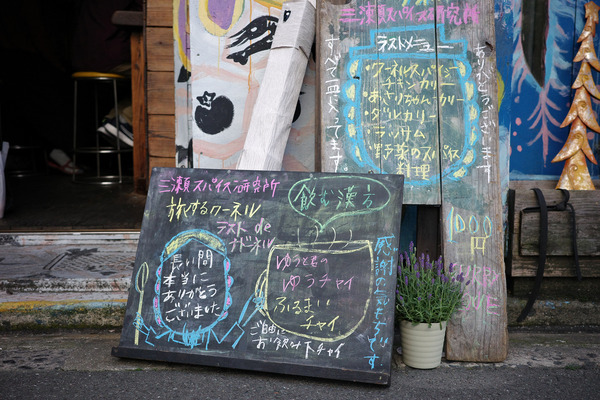 三瀬スパイス研究所
ラストメニュー
・クーネルスパイシーチキンカリー
・あさりちゃんカリー
・ダルカリー
・ラッサム
・野菜のスパイス料理
すべて一皿にのってます
ありがとうございます
1000円
三瀬スパイス研究所
旅するクーネル
ラスト de
ナドネル
長い間
本当に
ありがとう
ございました
飲む漢方
ゆうとの
ゆうチャイ
ふるまい
チャイ
ご自由に
お飲み下チャイ
感謝のきもちです